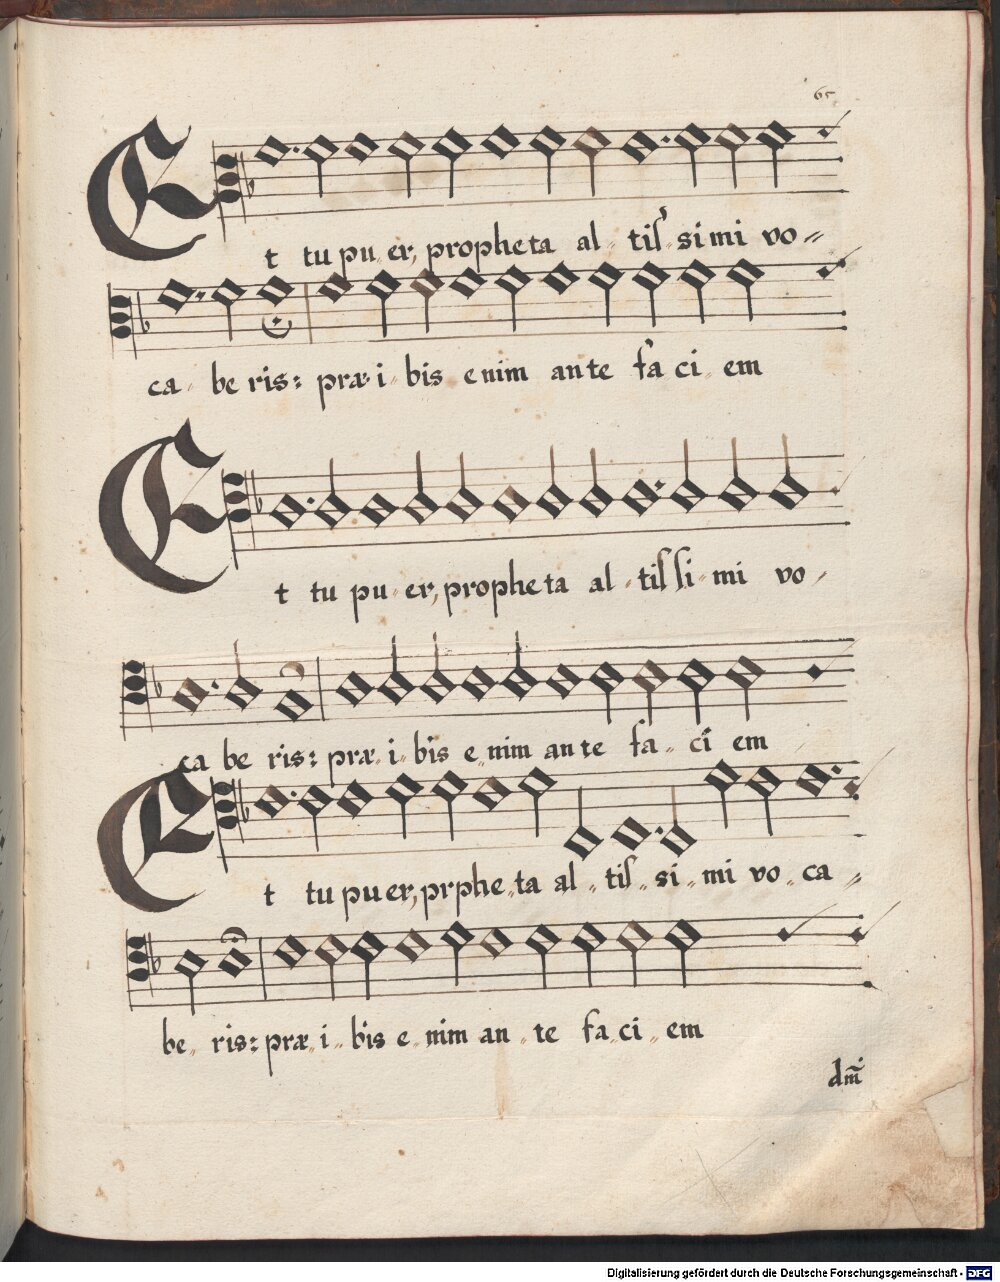 65
Et tu pu er, propheta al tiſ simi vo
ca be ris: præ i bis enim ante fa ci em
Et tu pu er, propheta al tiſ ſi mi vo
ca be ris: præ i bis e nim ante fa ci em
Et tu puer, prphe ta al tiſ si mi vo ca
be ris: præ i bis e nim an te fa ci em
dm̃i
Digitalisierung gefördert durch die Deutsche Forschungsgemeinschaft - DFG